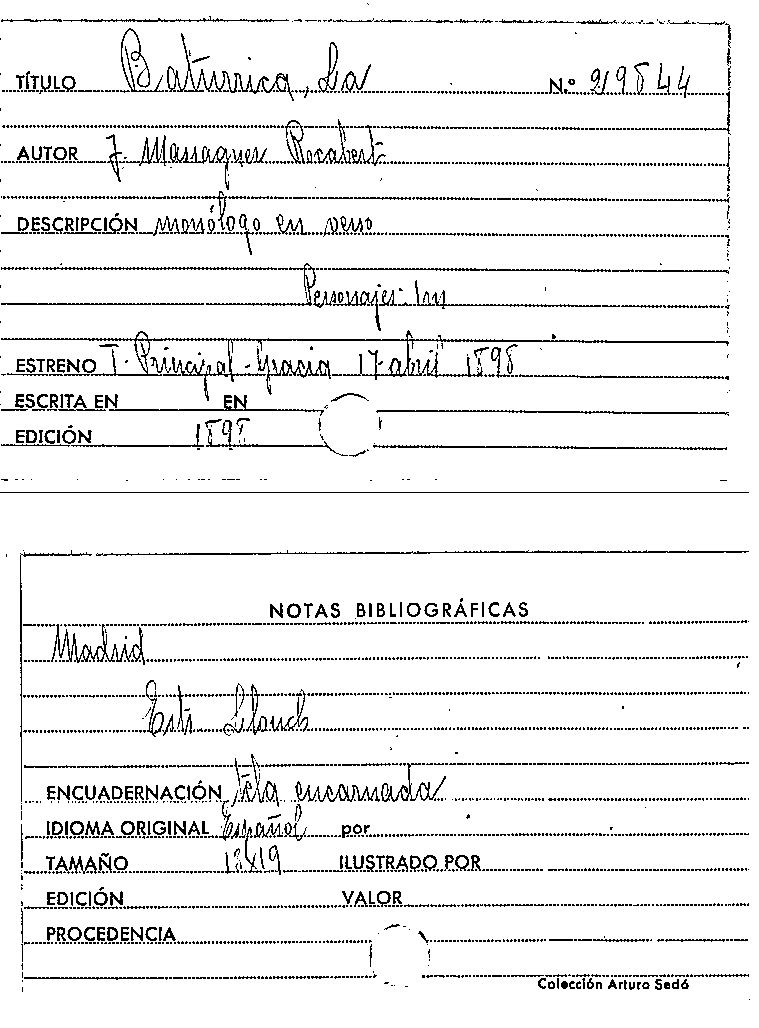 TÍTULO Baturrica, La N.º 219844
AUTOR J. Massaguer Rocabert
DESCRIPCIÓN monólogo en verso
Personajes: 1 m
ESTRENO T. Principal - Gracia 17 abril 1898
ESCRITA EN EN
EDICIÓN 1898
NOTAS BIBLIOGRÁFICAS
Madrid
Llonch
ENCUADERNACIÓN tela encarnada
IDIOMA ORIGINAL Español por
TAMAÑO 13x19 ILUSTRADO POR
EDICIÓN VALOR
PROCEDENCIA
Colección Arturo Sedó